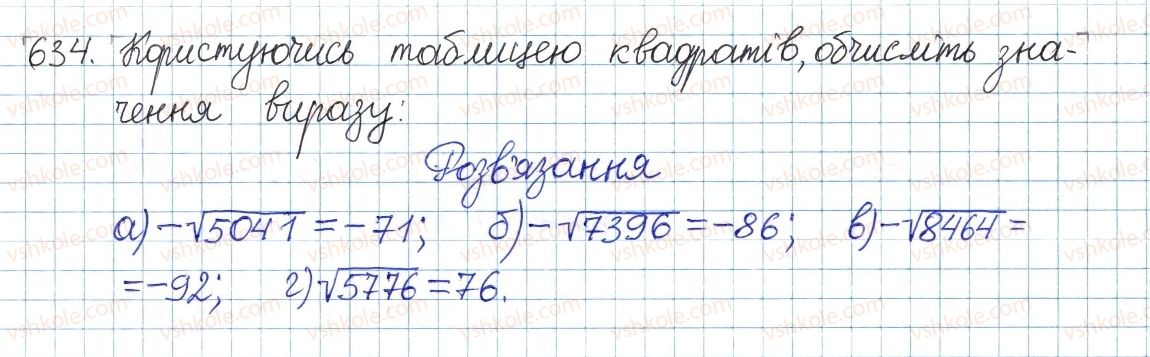 634. Користуючись таблицею квадратів, обчисліть зна-
чення виразу:
Розв'язання
а) -√5041 = -71; б) -√7396 = -86; в) -√8464 =
= -92; г) √5776 = 76.